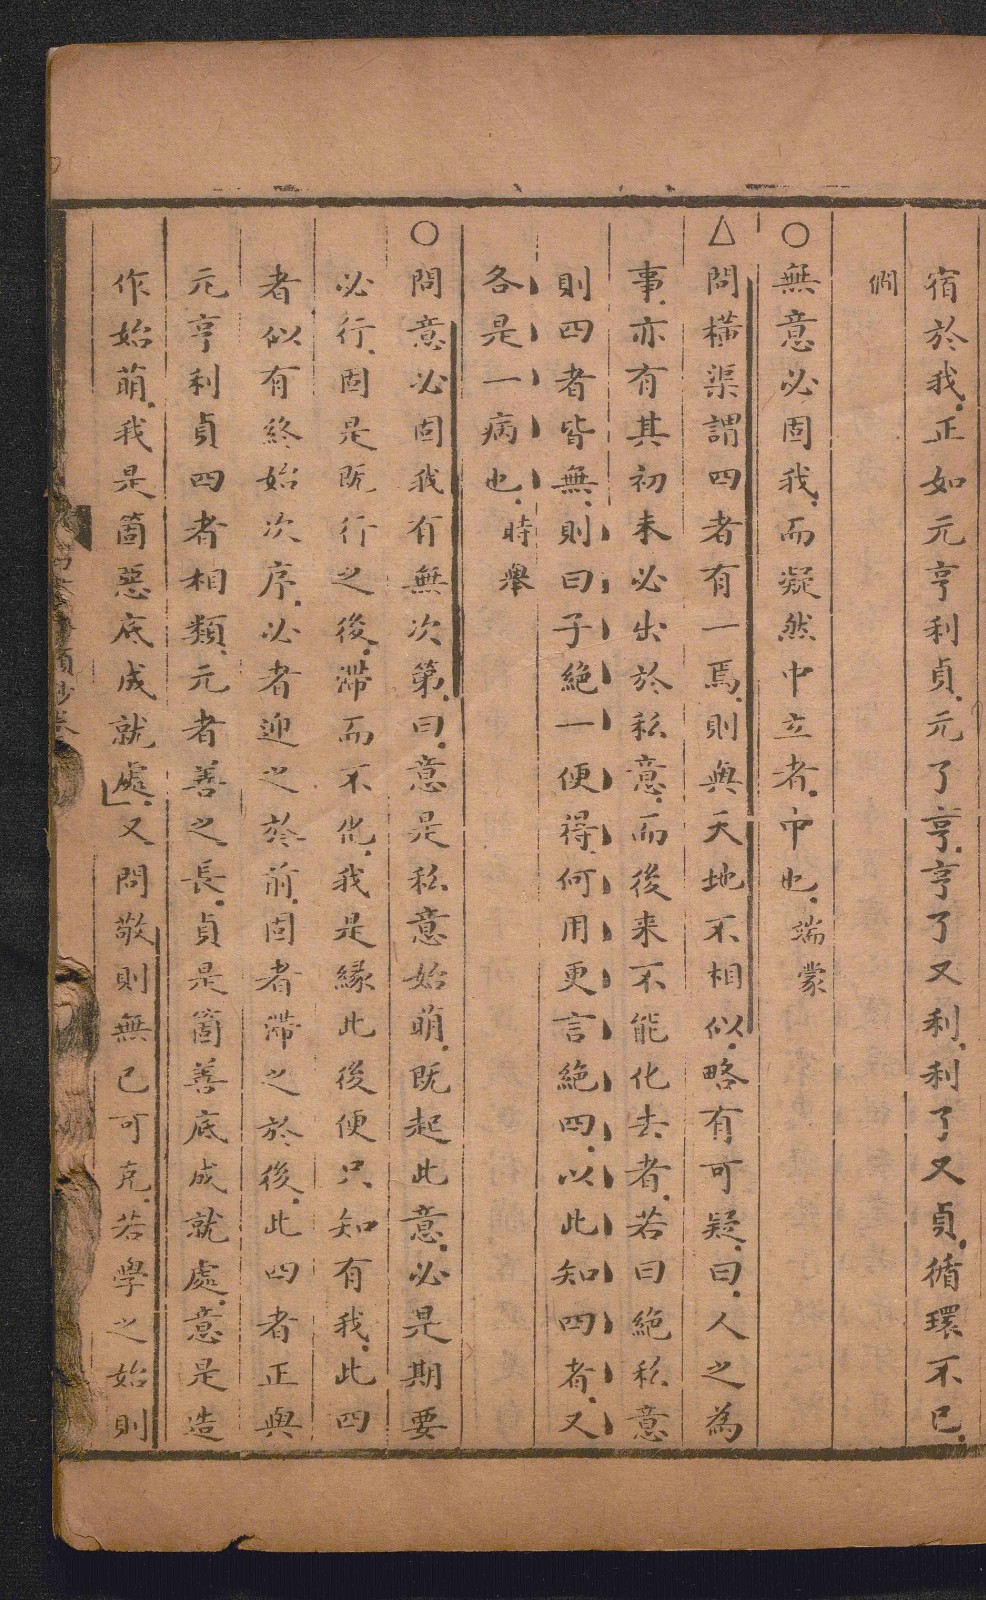 宿於我．正如元亨利貞．元了亨．亨了又利．利了又貞．循環不已．
僩
○無意必固我．而凝然中立者．中也．端蒙
△問橫渠謂四者有一焉．則與天地不相似．略有可疑．曰．人之為
事．亦有其初未必出於私意．而後来不能化去者．若曰絶私意
則四者皆無．則曰子絶一便得．何用更言絶四．以此知四者．又
各是一病也．時舉
○問意必固我有無次第．曰．意是私意始萌．既起此意．必是期要
必行．固是既行之後．滯而不化．我是縁此後便只知有我．此四
者似有終始次序．必者迎之於前．固者滯之於後．此四者正與
元亨利貞四者相類．元者善之長．貞是箇善底成就處．意是造
作始萌．我是箇惡底成就處．又問敬則無己可克．若學之始則